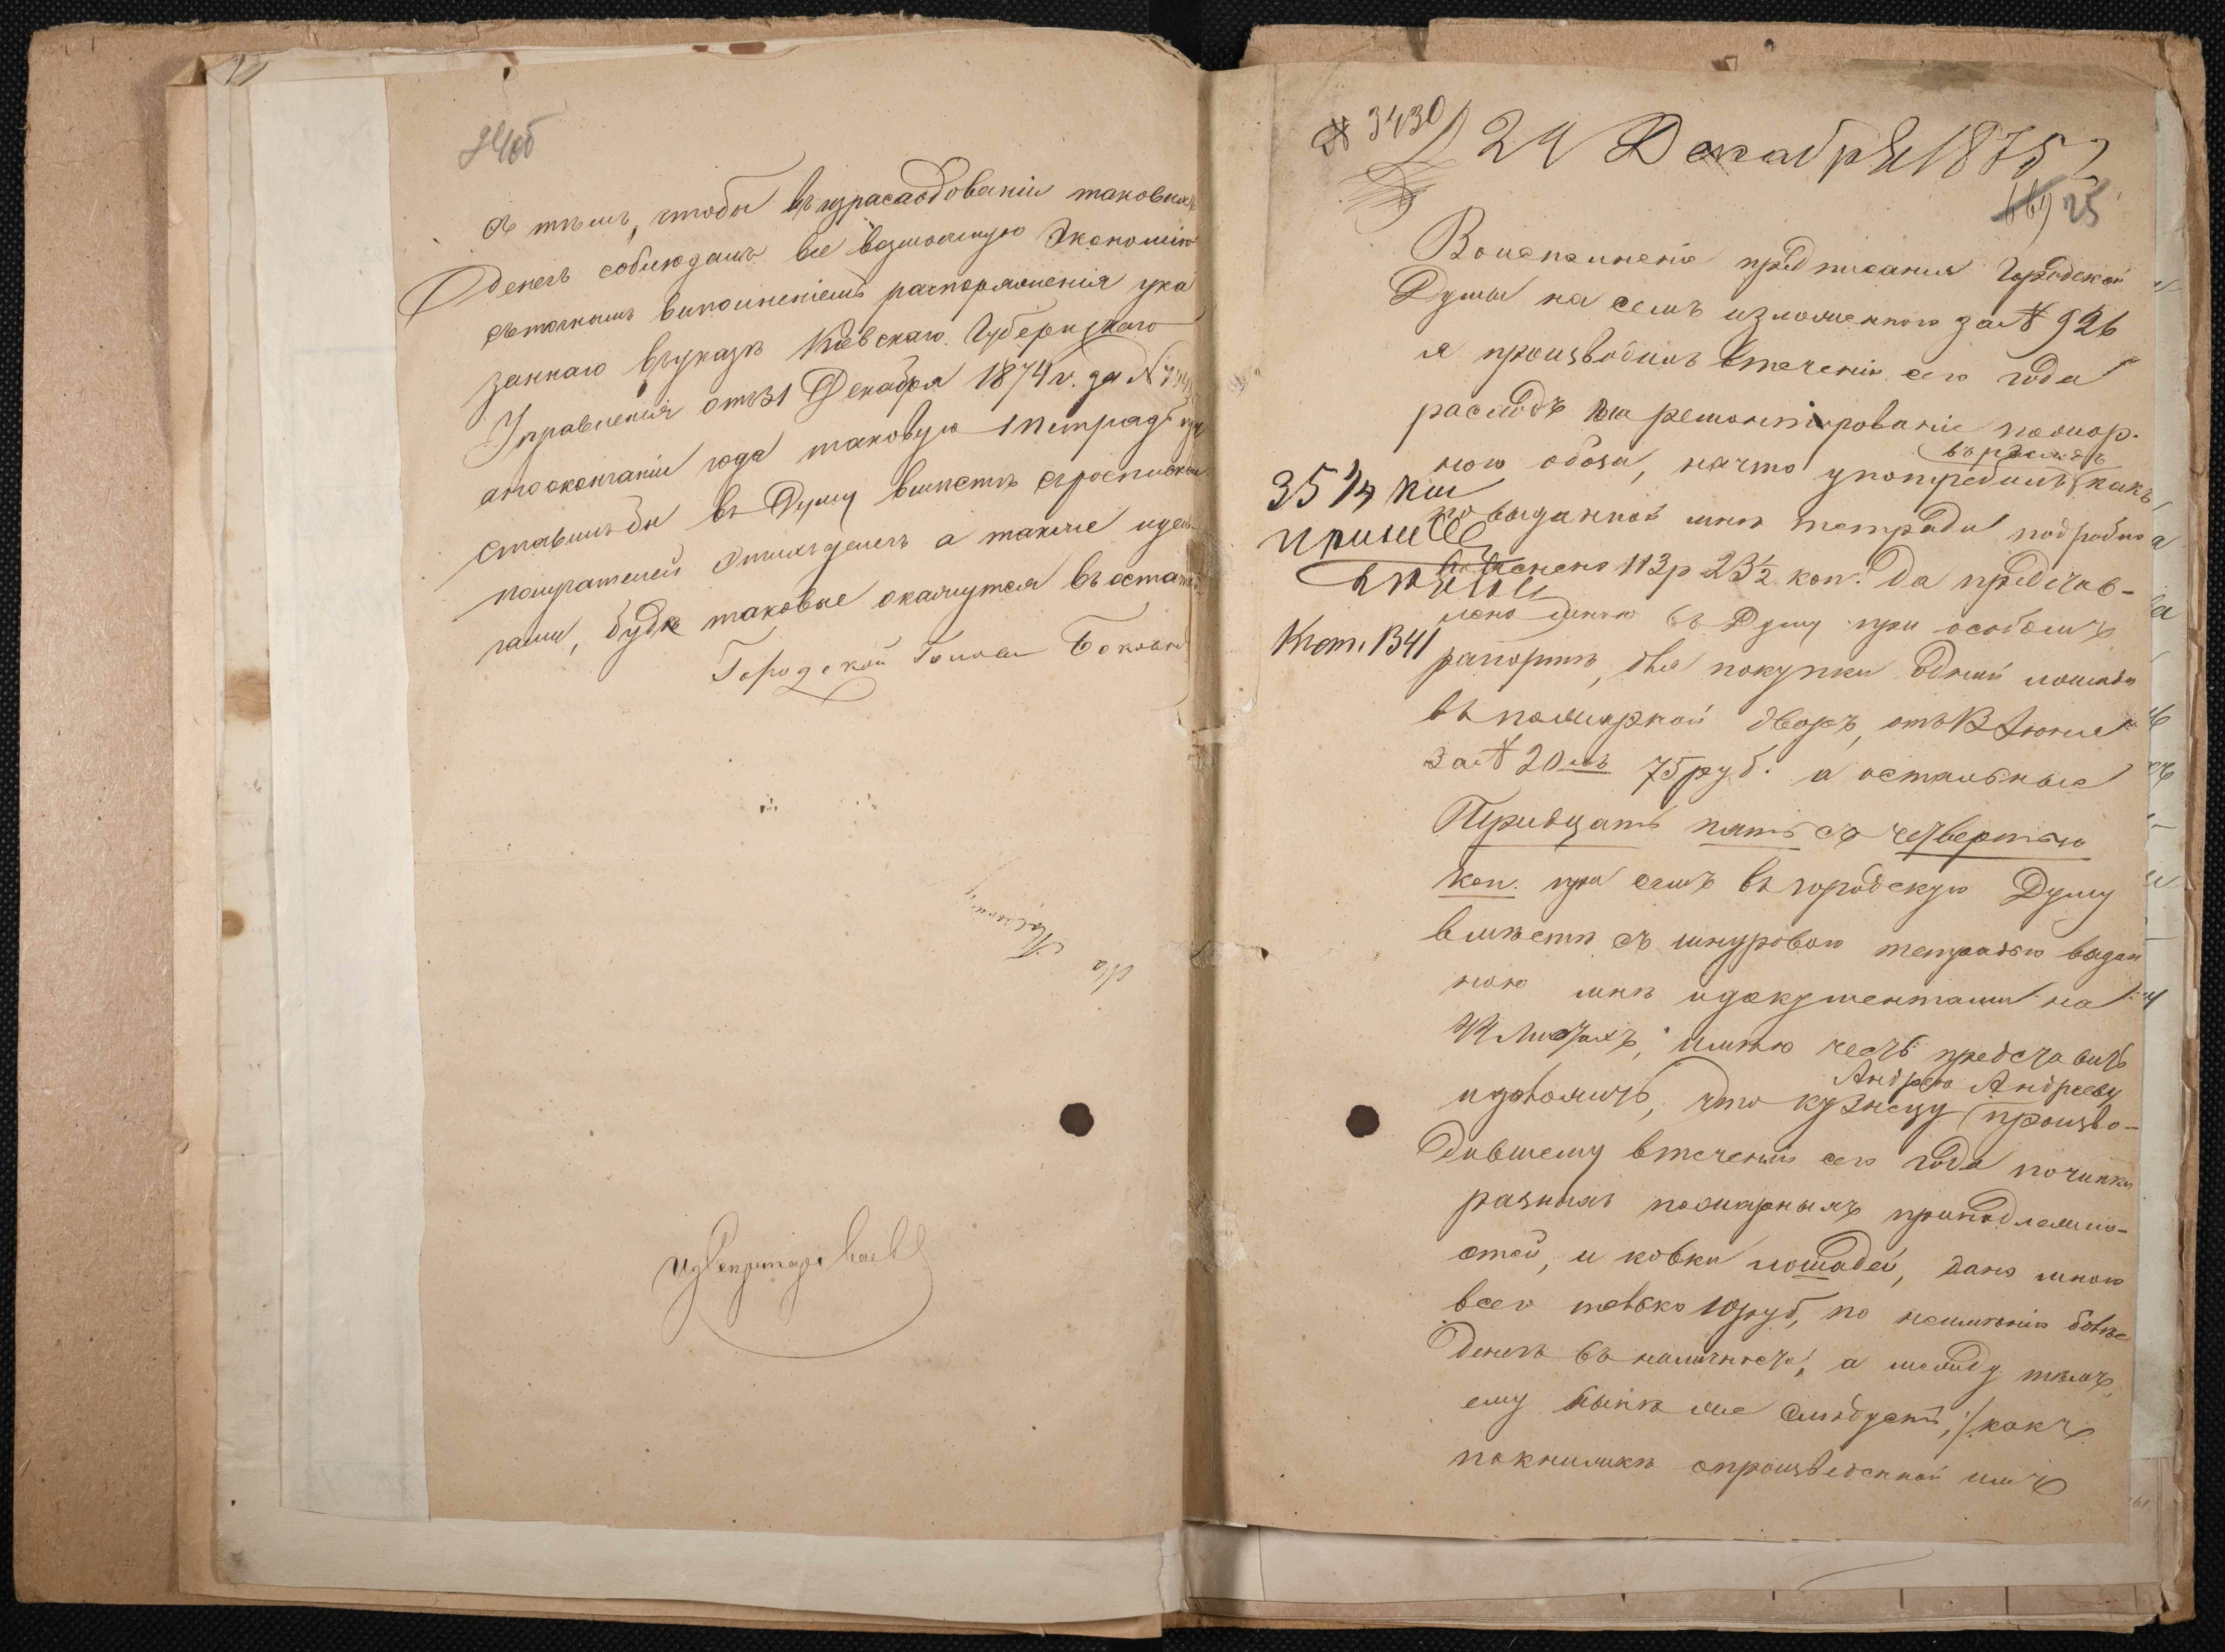 24об
съ тѣмъ, чтобы въ израсходованіи таковыхъ
денегъ соблюдать все возможную Экономію
съ точнымъ выполненіемъ распоряженія ука
заннаго въ указѣ Кіевскаго Губернскаго
Правленія отъ 31 Декабря 1874 г. за №
а по окончаніи года таковую тетрадь
ставить бы въ Думу вмѣстѣ съ росписками
получателей этихъ денегъ а также и день
гами, буде таковые окажутся въ остат
Городской Голова
Секретарь
№ 3430
24 Декабря 1875 г.
25
Во исполненіе предписанія Городской
Думы на семъ изложенного за № 926
я производилъ втеченіи сего года
расходъ на ремонтированіе пожар-
ного обоза, на что употребилъ какъ
въ расходъ
35 1/4 коп
принялъ
по выданной мнѣ тетради подробно
113 р 23 1/2 коп. Да представ-
лено мною въ Думу при особомъ
Кот. 1341
рапортѣ, для покупки одной лошади
въ пожарной дворъ, отъ 13 Іюня
за № 20мъ 75 руб. а остальные
Тридцать пять съ четвертью
коп. при семъ въ городскую Думу
вмѣстѣ съ шнуровою тетрадью выдан
ною мнѣ и документами на
44 Листахъ, имѣю честь представить
и доложить, что кузнецу произво-
Андрею Андрееву
дившему втеченіи сего года починки
разныхъ пожарныхъ принадлежно-
стей, и ковки лошадей, дано мною
всего только 10 руб, по неимѣнію болѣе
денегъ въ наличности, а между тѣмъ,
ему нынѣ же слѣдуетъ, /какъ
по книжкѣ о произведенной имъ